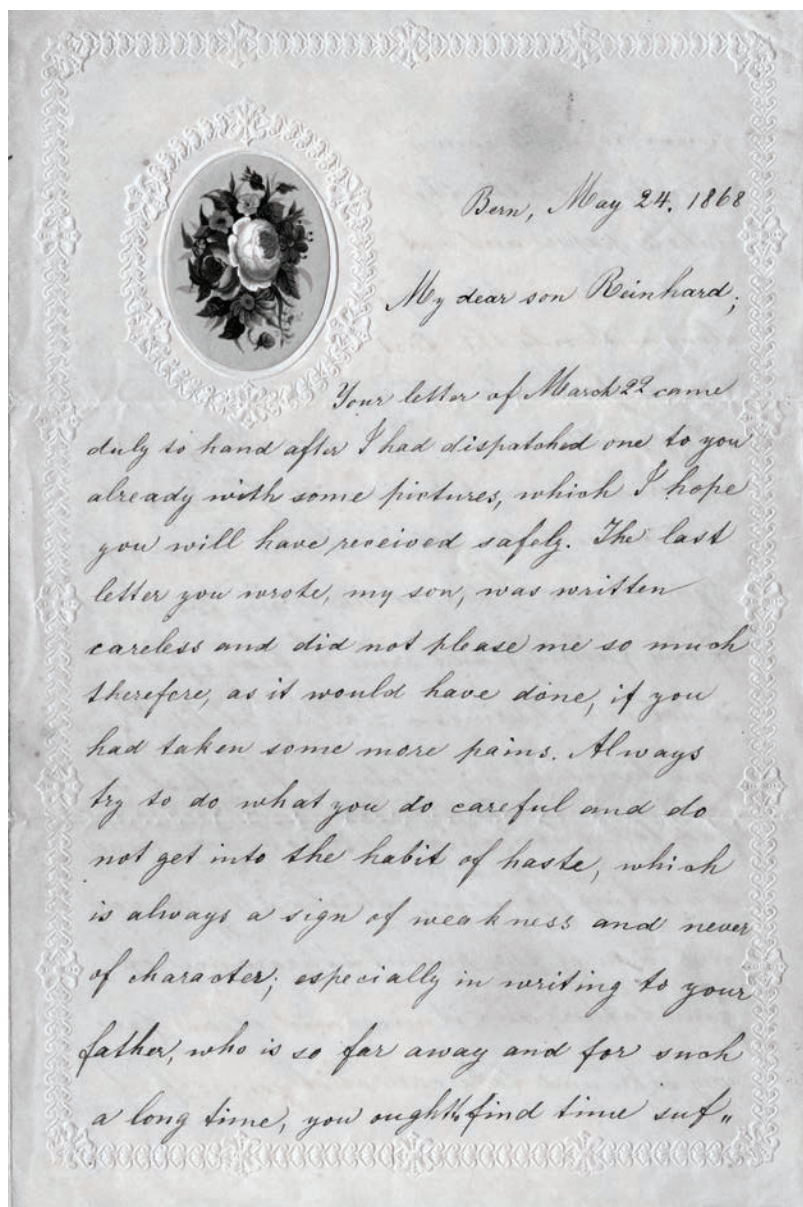 Bern, May 24. 1868
My dear son Reinhard;
Your letter of March 22 came
duly to hand after I had dispatched one to you
already with some pictures, which I hope
you will have received safely. The last
letter you wrote, my son, was written
careless and did not please me so much
therefore, as it would have done, if you
had taken some more pains. Always
try to do what you do careful and do
not get into the habit of haste, which
is always a sign of weakness and never
of character; especially in writing to your
father, who is so far away and for such
a long time, you ought to find time suf„